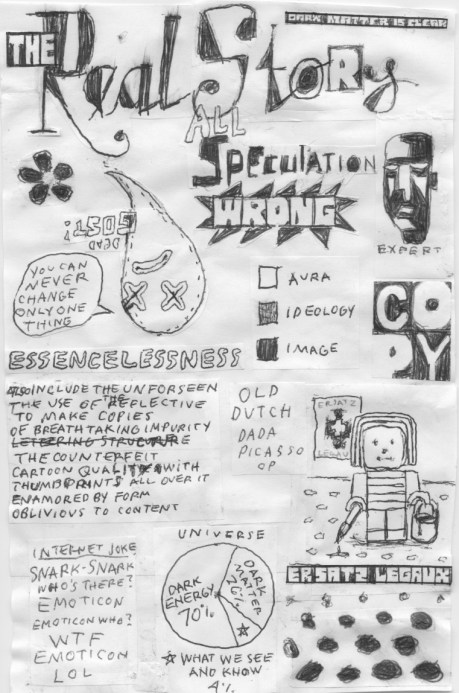 DARK MATTER IS CLEAR
THE
Real Story
ALL
SPECULATION
WRONG
EXPERT
DEAD
YOU CAN
NEVER
CHANGE
ONLY ONE
THING
AURA
IDEOLOGY
IMAGE
COPY
ESSENCELESSNESS
ALSO INCLUDE THE UNFORSEEN
THE USE OF THE REFLECTIVE
TO MAKE COPIES
OF BREATHTAKING IMPURITY
LETTERING STRUCTURE
THE COUNTERFEIT
CARTOON QUALITY WITH
THUMBPRINTS ALL OVER IT
ENAMORED BY FORM
OBLIVIOUS TO CONTENT
OLD
DUTCH
DADA
PICASSO
OP
ERSATZ
LEGAUX
ERSATZ LEGAUX
INTERNET JOKE
SNARK-SNARK
WHO'S THERE?
EMOTICON
EMOTICON WHO?
WTF
EMOTICON
LOL
UNIVERSE
DARK
ENERGY
70%
DARK
MATTER
26%
WHAT WE SEE
AND KNOW
4%